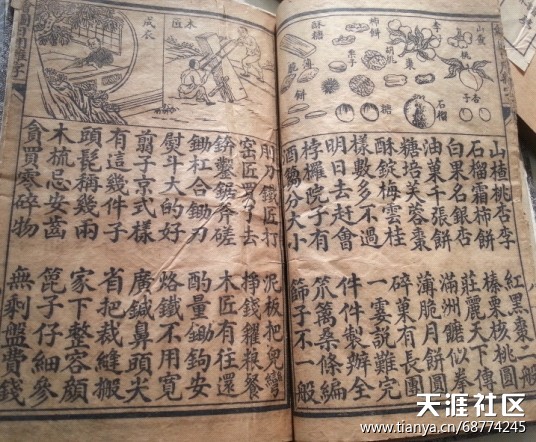 山査
李
桃
杏子
棗
胡桃
柿餅
栗子
酥糖
薄餅
糖
石榴
山楂桃杏李
石榴霜柿餅
白果名銀杏
油菓千張餅
糖培芙蓉棗
酥錠梅雪桂
樣數多不過
明日去赶會
桲欏院子有
酒鍋分大小
紅黑棗一
榛栗核桃圓
莊麗天下傳
滿洲餹似拳
薄脆月餅圓
碎菓有長團
一霎說難完
件件製辦全
笊篱桑條編
篩子不一般
木匠
成衣
刀鐵匠打
窑匠買了去
錛鑿鋸斧磋
鋤杠合鋤刃
熨斗大的好
翦子京式樣
有這幾件子
頭髮稱幾兩
木梳忌安齒
貪買零碎物
泥板把兒彎
掙錢糴粮餐
木匠有往還
酌量鋤鈎安
烙鐵不用寬
廣鍼鼻頭尖
省把裁縫搬
家下整容顔
篦子仔細參
無剩盤費錢
天涯社区
www.tianya.cn/68774245